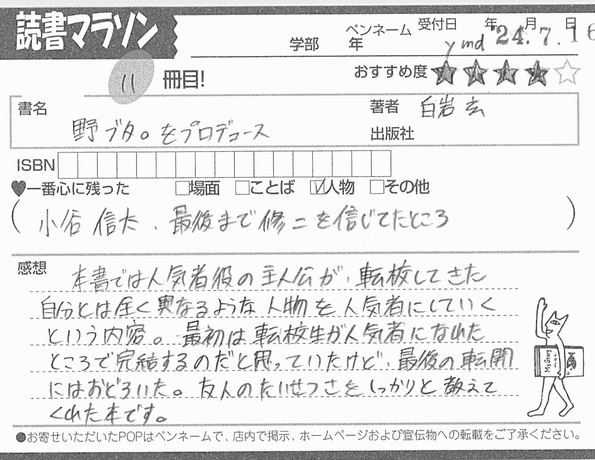 読書マラソン
学部 年 ペンネーム ymd 受付日 年 月 日 '24.7.16
11冊目!
おすすめ度 ★★★★☆
書名 野ブタ。をプロデュース
著者 白岩玄
出版社
ISBN
♥一番心に残った □場面 □ことば ☑人物 □その他
(小谷信太、最後まで修二を信じてたところ)
感想 本書では人気者役の主人公が、転校してきた
自分とは全く異なるような人物を人気者にしていく
という内容。最初は転校生が人気者になれた
ところで完結するのだと思っていたけど、最後の転開
にはおどろいた。友人のたいせつさをしっかりと教えて
くれた本です。
●お寄せいただいたPOPはペンネームで、店内で掲示、ホームページおよび宣伝物への転載をご了承ください。